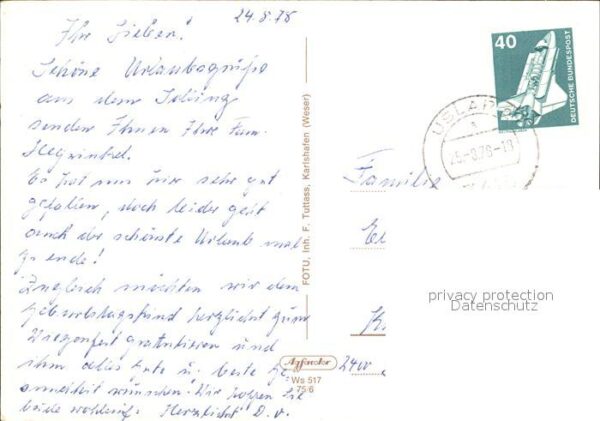 24.8.78
Ihr Lieben!
Schöne Urlaubsgrüße
aus dem Solling
senden Ihnen Ihre Fam.
Es hat uns hier sehr gut
gefallen, doch leider geht
auch der schönste Urlaub mal
zu ende!
Zugleich möchten wir dem
Geburtstagskind herzlichst zum
Wiegenfest gratulieren und
ihm alles Gute u. beste Ge-
sundheit wünschen. Wir hoffen Sie
beide wohlauf. Herzlichst D. u.
FOTU, Inh. F. Tuttass, Karlshafen (Weser)
40
DEUTSCHE BUNDESPOST
USLAR
Familie
2400
privacy protection
Datenschutz
Ws 517
75/6